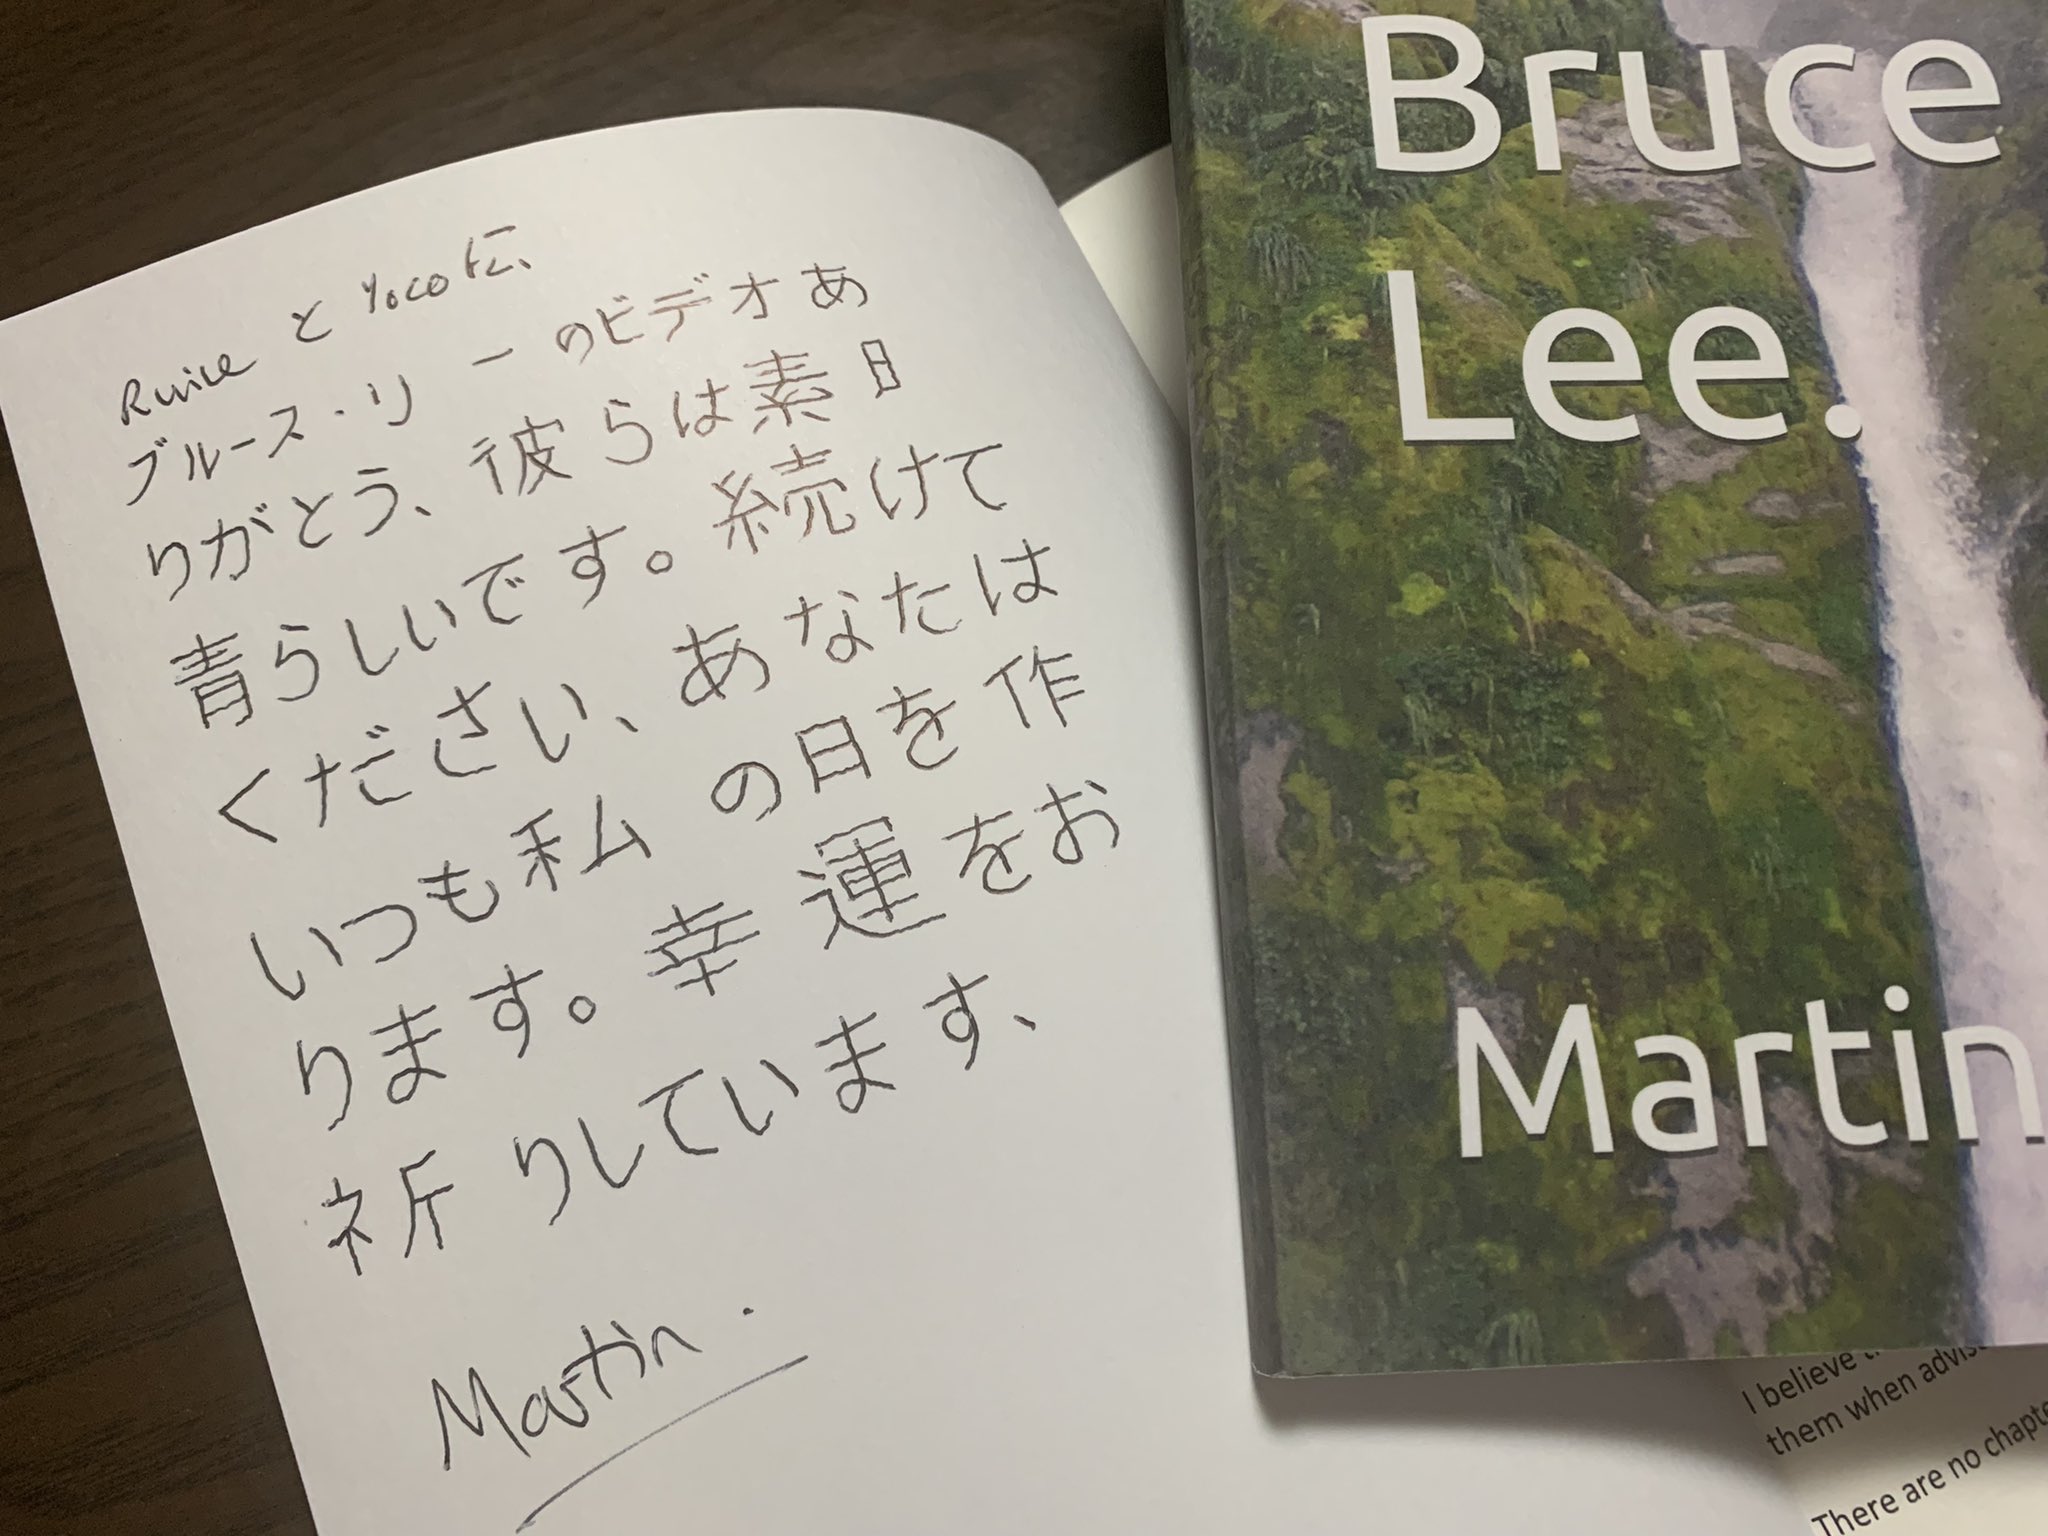 と Yoco に、
ブルース・リーのビデオあ
りがとう、彼らは素日
青らしいです。続けて
ください、あなたは
いつも私の日を作
ります。幸運をお
祈りしています、
Martin.
Bruce
Lee.
Martin
I believe
them when
There are no